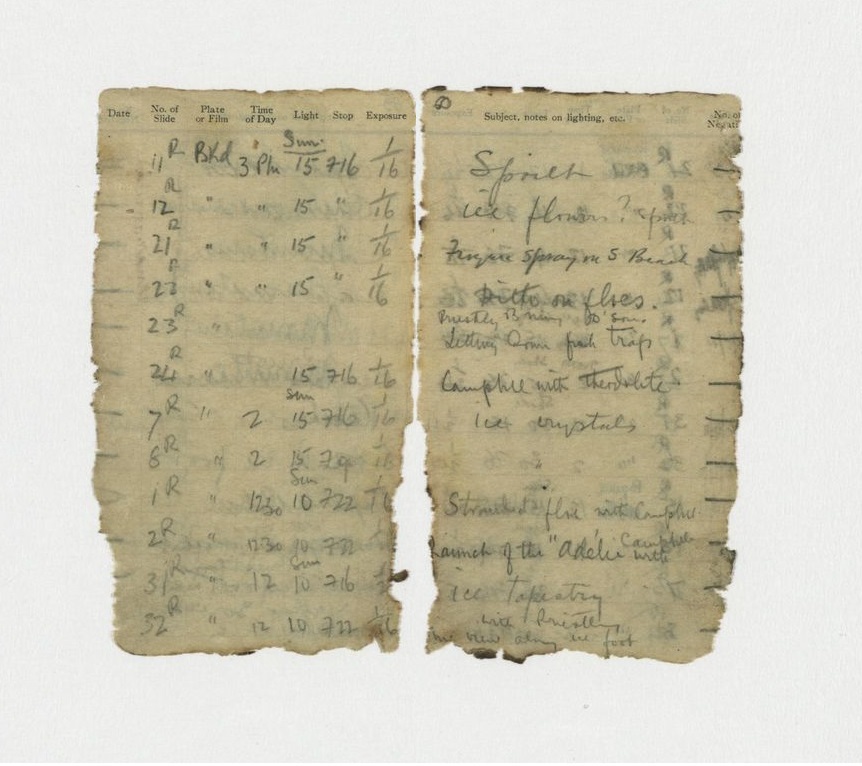 Date No. of Slide Plate or Film Time of Day Light Stop Exposure
Sun.
11 R Bkd 3 Pm 15 716 1/16
12 R " " 15 " 1/16
21 R " " 15 " 1/16
22 R " " 15 " 1/16
23 R "
24 R " 15 716 1/16
Sun
7 R " 2 15 716 1/16
8 R " 2 15
Sun
1 R " 1230 10 722
2 R " 1230 10 722
Sun
31 R " 12 10 716
32 R " 12 10 722 1/16
60
Subject, notes on lighting, etc. No. of
ice flowers?
Spray on S Beach
Ditto on floes.
Priestley
Letting down fish traps
Campbell with theodolite
Ice crystals
Stranded floe with Campbell
Launch of the "Adélie" with Campbell
ice tapestry
with Priestley
view along ice foot